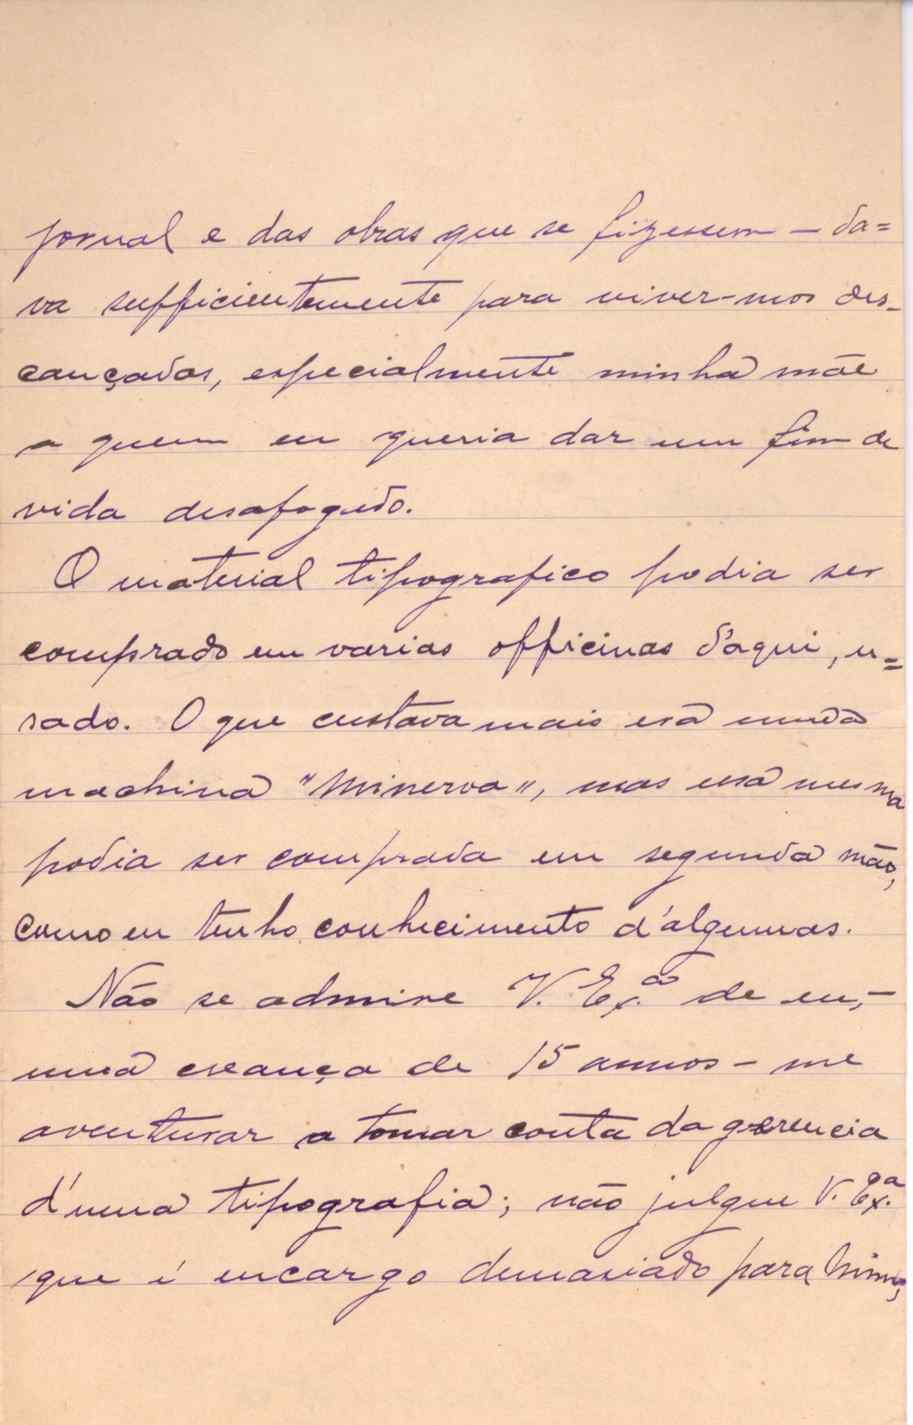 jornal e das obras que se fizessem — da=
va sufficientemente para viver-mos des-
cançados, especialmente minha mãe
a quem eu queria dar um fim de
vida desafogado.
O material tipografico podia ser
comprado em varias officinas d'aqui, u=
sado. O que custava mais era uma
machina "Minerva", mas essa mesma
podia ser comprada em segunda mão,
como eu tenho conhecimento d'algumas.
Não se admire V. Ex.ª de eu, —
uma creança de 15 annos — me
aventurar a tomar conta da gerencia
d'uma tipografia; não julgue V. Ex.ª
que é encargo demasiado para mim,